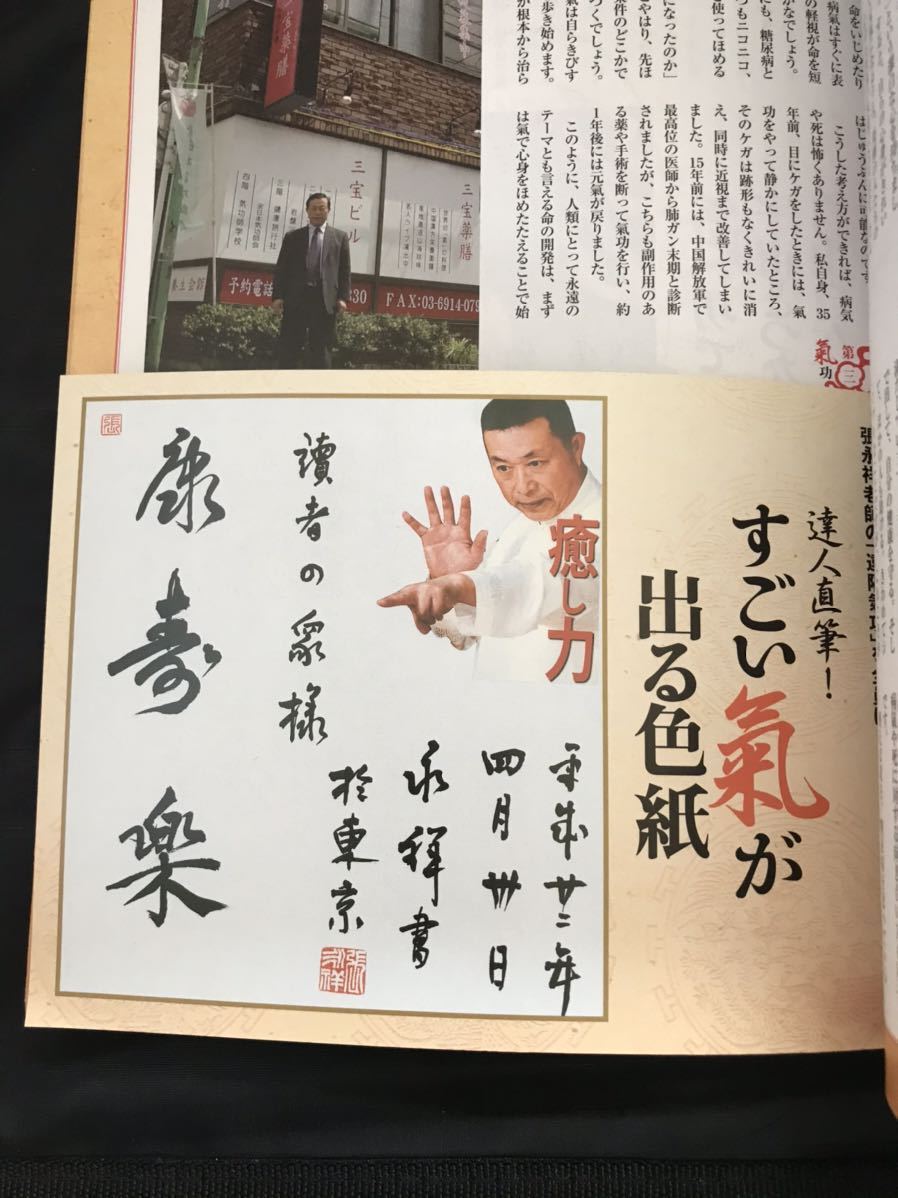 命をいじめたり
病氣はすぐに表
の軽視が命を短
かなでしょう。
にも、糖尿病と
つもニコニコ、
使ってほめる
になったのか」
やはり、先ほ
条件のどこかで
つくでしょう。
氣は自らきびす
歩き始めます。
が根本から治ら
はじゅうぶんに可能なのです
こうした考え方ができれば、病気
や死は怖くありません。私自身、35
年前、目にケガをしたときには、氣
功をやって静かにしていたところ、
そのケガは跡形もなくきれいに消
え、同時に近視まで改善してしまい
ました。15年前には、中国解放軍で
最高位の医師から肺ガン末期と診断
されましたが、こちらも副作用のあ
る薬や手術を断って氣功を行い、約
1年後には元氣が戻りました。
このように、人類にとって永遠の
テーマとも言える命の開発は、まず
は氣で心身をほめたたえることで始
第三
氣功
三宝薬膳
三宝ビル
三宝薬膳
四階 気功師学校
三階 健康旅行社
予約電話
330
FAX:03-6914-079
養生会館
達人直筆！
すごい氣が
出る色紙
癒し力
平成廿二年
四月卅日
永祥書
於東京
讀者の眾様
康寿楽
張
張永祥